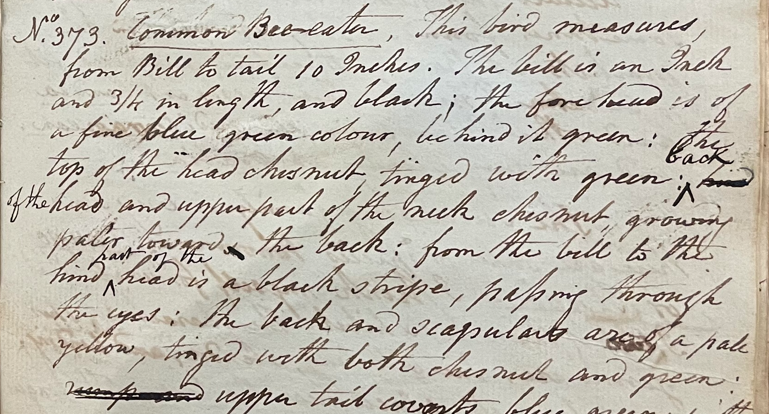 No. 373. Common Bee-eater. This bird measures,
from Bill to tail 10 Inches. The bill is an Inch
and 3/4 in length, and black; the forehead is of
a fine blue green colour, behind it green: the
top of the head chesnut, tinged with green: back
of the head and upper part of the neck chesnut, growing
paler toward the back: from the bill to the
hind part of the head is a black stripe, passing through
the eyes: the back and scapulars are of a pale
yellow, tinged with both chesnut and green.
upper tail coverts blue green